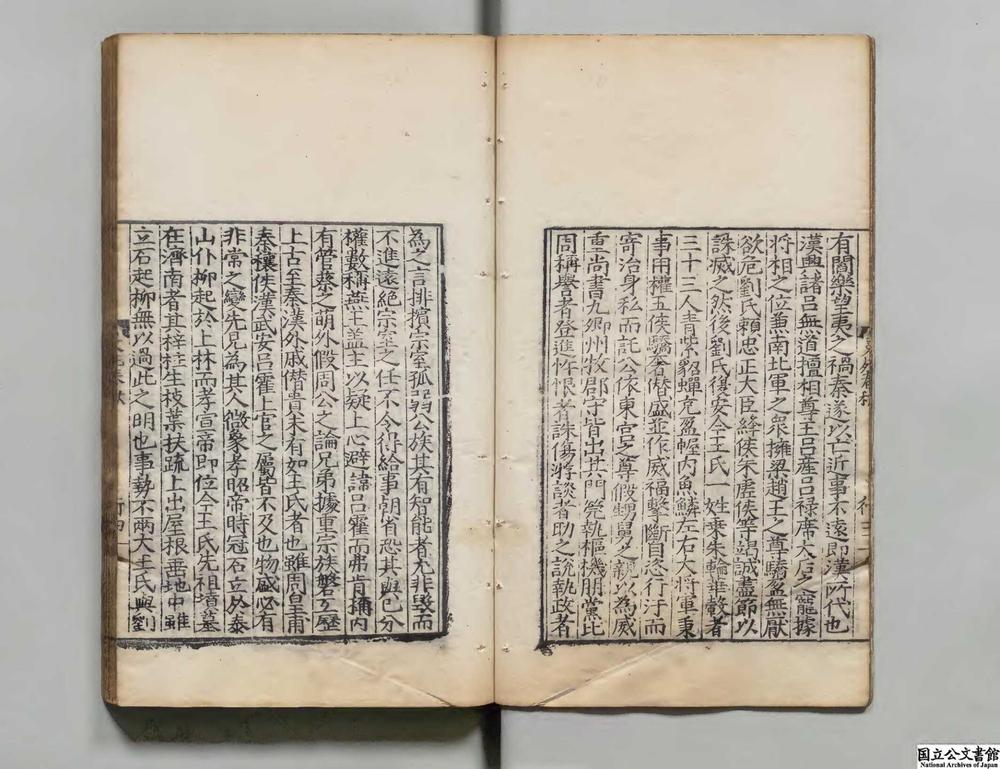 有閻樂望夷之禍秦遂以亡近事不遠即漢所代也
漢興諸呂無道擅相尊王呂產呂祿席太后之寵據
將相之位兼南北軍之衆擁梁趙王之尊驕盈無厭
欲危劉氏賴忠正大臣絳侯朱虛侯等竭誠盡節以
誅滅之然後劉氏復安今王氏一姓乘朱輪華轂者
二十三人青紫貂蟬充盈幄內魚鱗左右大將軍秉
事用權五侯驕奢僣盛並作威福擊斷自恣行汙而
寄治身私而託公依東宮之尊假甥舅之親以為威
重尚書九卿州牧郡守皆出其門筦執樞機朋黨比
周稱譽者登進忤恨者誅傷游談者助之說執政者
為之言排擯宗室孤弱公族其有智能者尤非毀而
不進遠絕宗室之任不令得給事朝省恐其與己分
權數稱燕王盖主以疑上心避諱呂霍而弗肯稱內
有管蔡之萌外假周公之論兄弟據重宗族磐互歷
上古至秦漢外戚僣貴未有如王氏者也雖周皇甫
秦穰侯漢武安呂霍上官之屬皆不及也物盛必有
非常之變先見為其人微象孝昭帝時冠石立於泰
山仆柳起於上林而孝宣帝即位今王氏先祖墳墓
在濟南者其梓柱生枝葉扶疏上出屋根垂地中雖
立石起柳無以過此之明也事勢不兩大王氏與劉
国立公文書館
National Archives of Japan